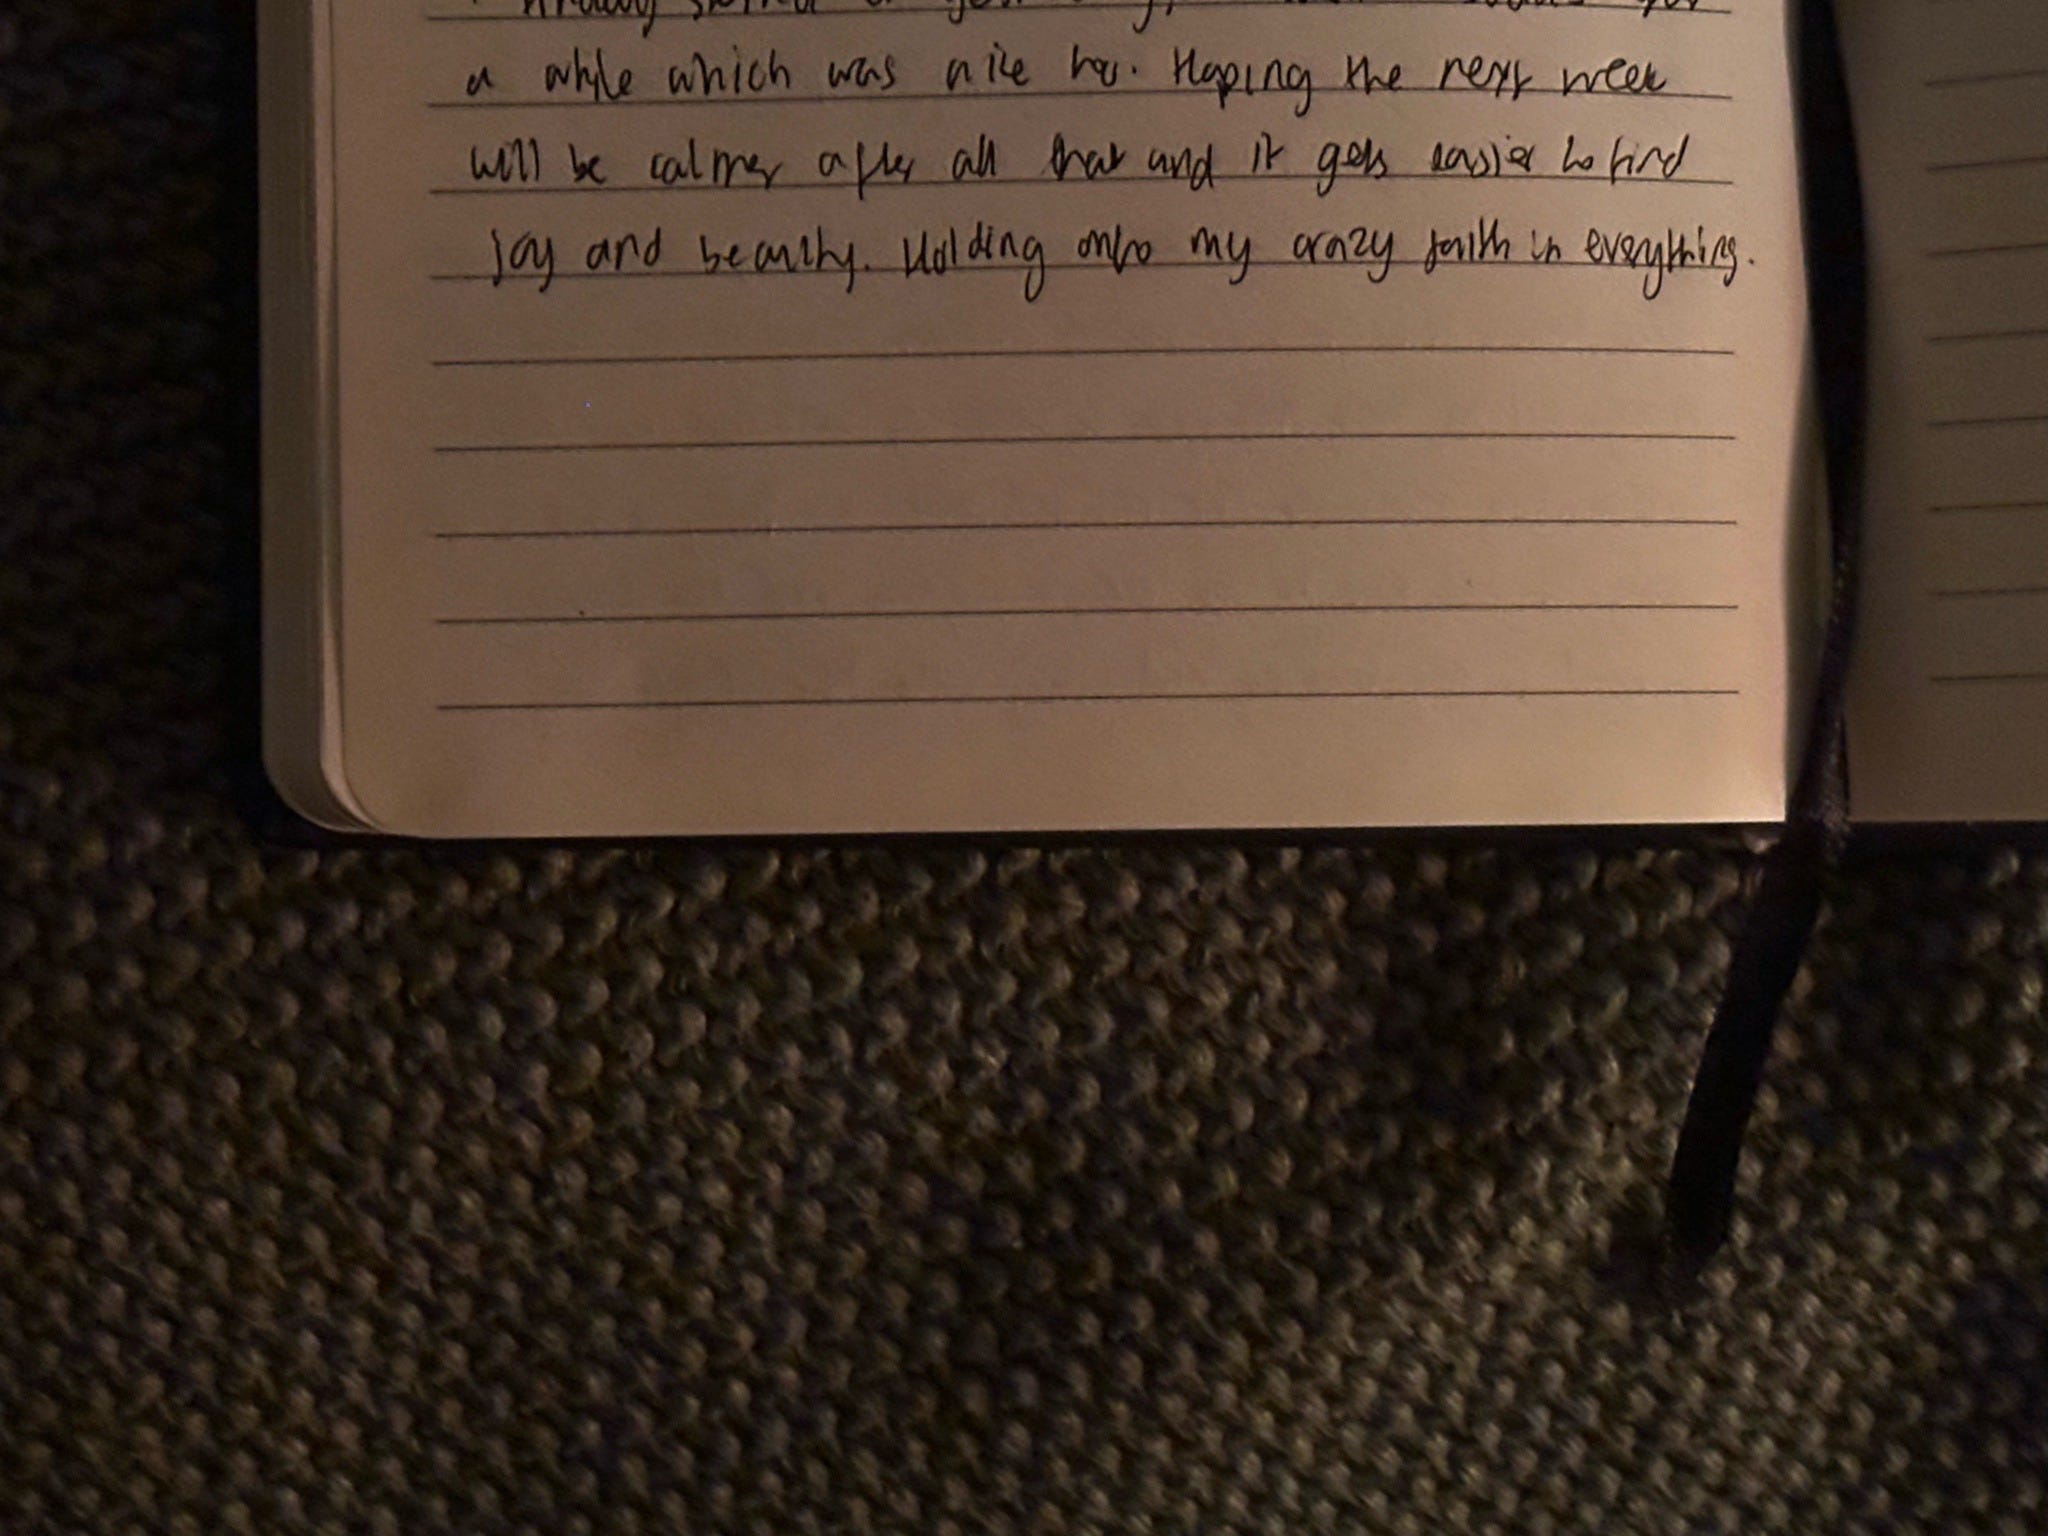 a while which was nice too. Hoping the next week
will be calmer after all that and it gets easier to find
joy and beauty. Holding onto my crazy faith in everything.